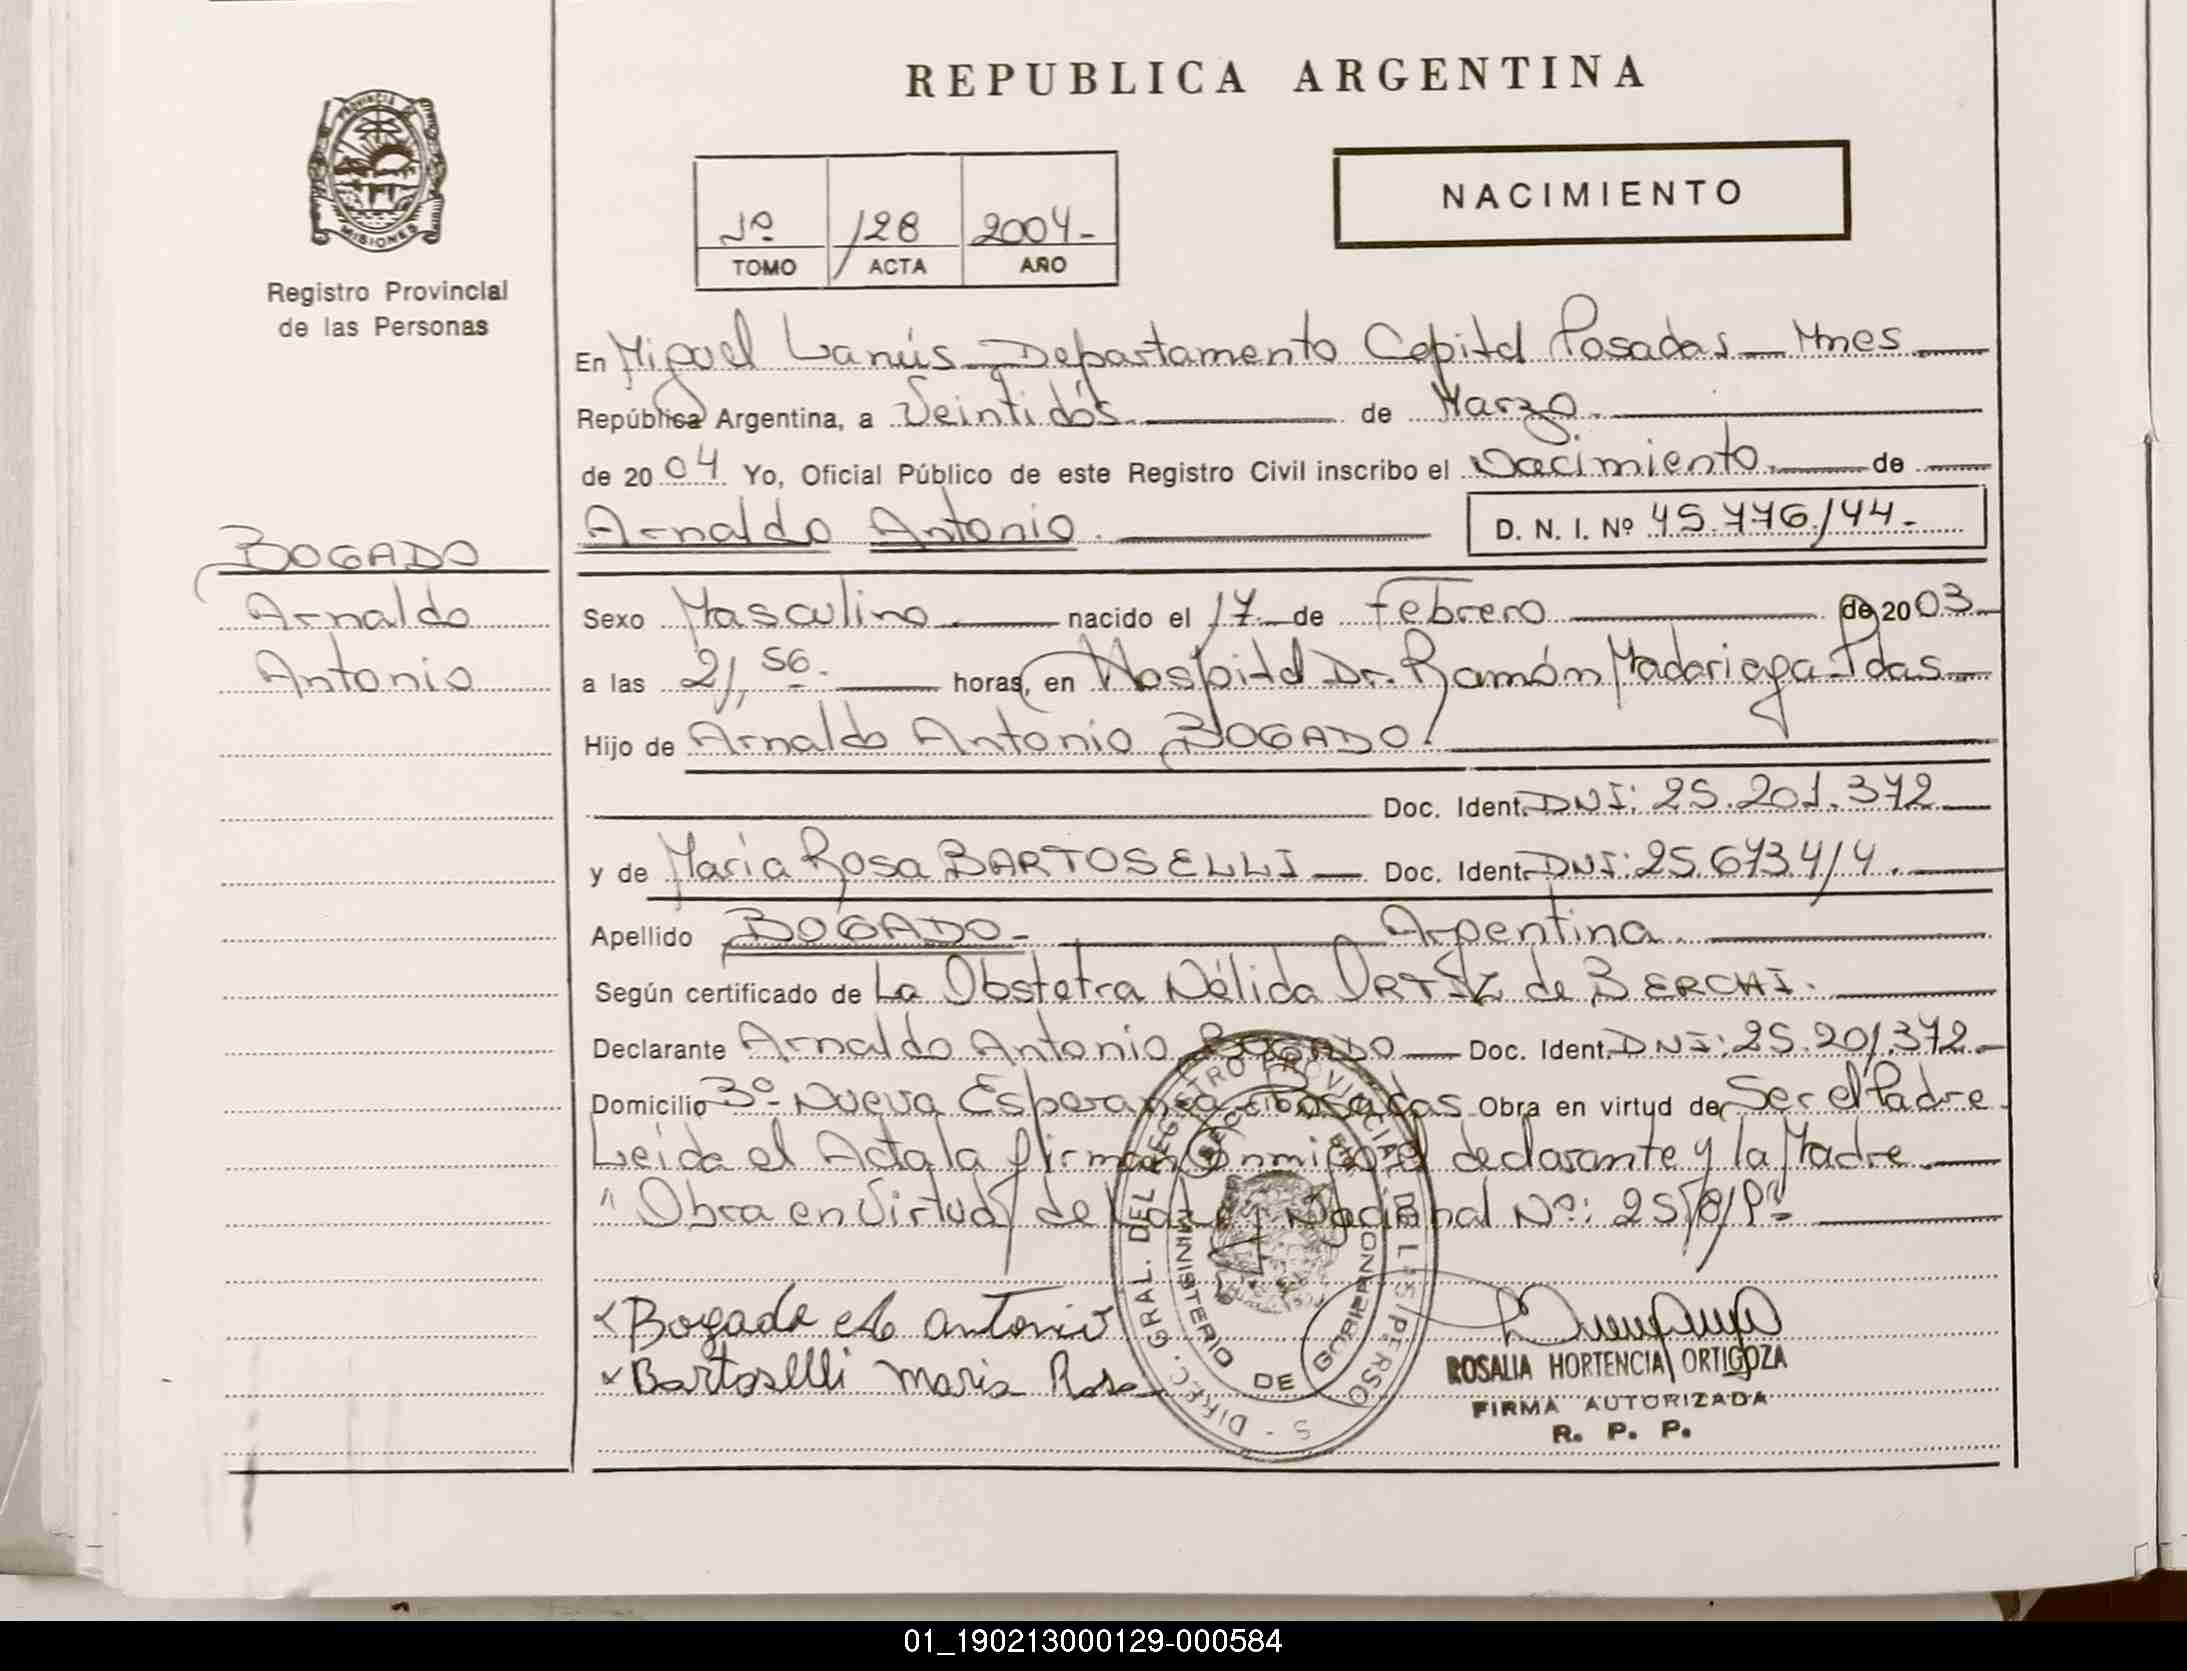 REPUBLICA ARGENTINA
PROVINCIA DE MISIONES
Registro Provincial
de las Personas
1º 128 2004-
TOMO ACTA AÑO
NACIMIENTO
En Miguel Lanús Departamento Capital Posadas Mnes
República Argentina, a Veintidós de Marzo.
de 2004 Yo, Oficial Público de este Registro Civil inscribo el Nacimiento. de
Arnaldo Antonio.
D. N. I. Nº 45.776.144.-
BOGADO
Arnaldo
Antonio
Sexo Masculino nacido el 17 de Febrero de 2003
a las 21,56. horas, en Hospital Dr. Ramón Madariaga Pdas
Hijo de Arnaldo Antonio BOGADO.
Doc. Ident. DNI: 25.201.372
y de María Rosa BARTOSELLI Doc. Ident. DNI: 25.673.414.
Apellido BOGADO- Argentina.
Según certificado de La Obstetra Nélida ORTIZ de BERCHI.
Declarante Arnaldo Antonio BOGADO Doc. Ident. DNI: 25.201.372.
Domicilio Bº Nueva Esperanza Posadas Obra en virtud de Ser el Padre
Leída el Acta la firman conmigo el declarante y la Madre
"Obra en Virtud de Nacional Nº:
Bogado antonio
Bartoselli Maria Rosa
DIREC. GRAL. DEL REGISTRO PROVINCIAL DE LAS PERSONAS
MINISTERIO DE GOBIERNO
ROSALIA HORTENCIA ORTIGOZA
FIRMA AUTORIZADA
R. P. P.
01_190213000129-000584